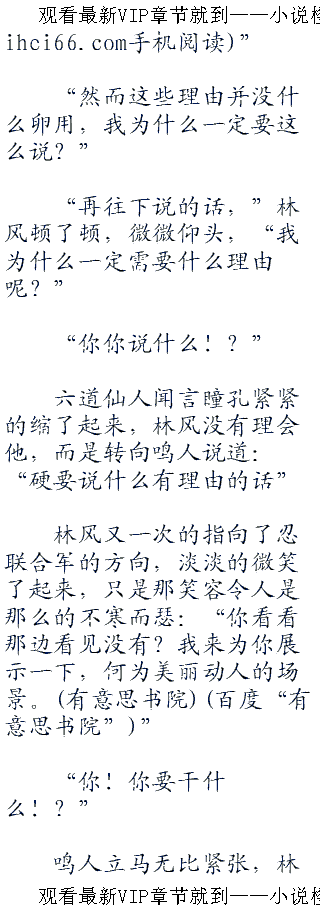 观看最新VIP章节就到一一小说检
ihci66.com手机阅读)”
“然而这些理由并没什
么卵用，我为什么一定要这
么说？”
“再往下说的话，”林
风顿了顿，微微仰头，“我
为什么一定需要什么理由
呢？”
“你你说什么！？”
六道仙人闻言瞳孔紧紧
的缩了起来，林风没有理会
他，而是转向鸣人说道：
“硬要说什么有理由的话”
林风又一次的指向了忍
联合军的方向，淡淡的微笑
了起来，只是那笑容令人是
那么的不寒而瑟：“你看看
那边看见没有？我来为你展
示一下，何为美丽动人的场
景。(有意思书院)(百度“有
意思书院”)”
“你！你要干什
么！？”
鸣人立马无比紧张，林
观看最新VIP章节就到一一小说检